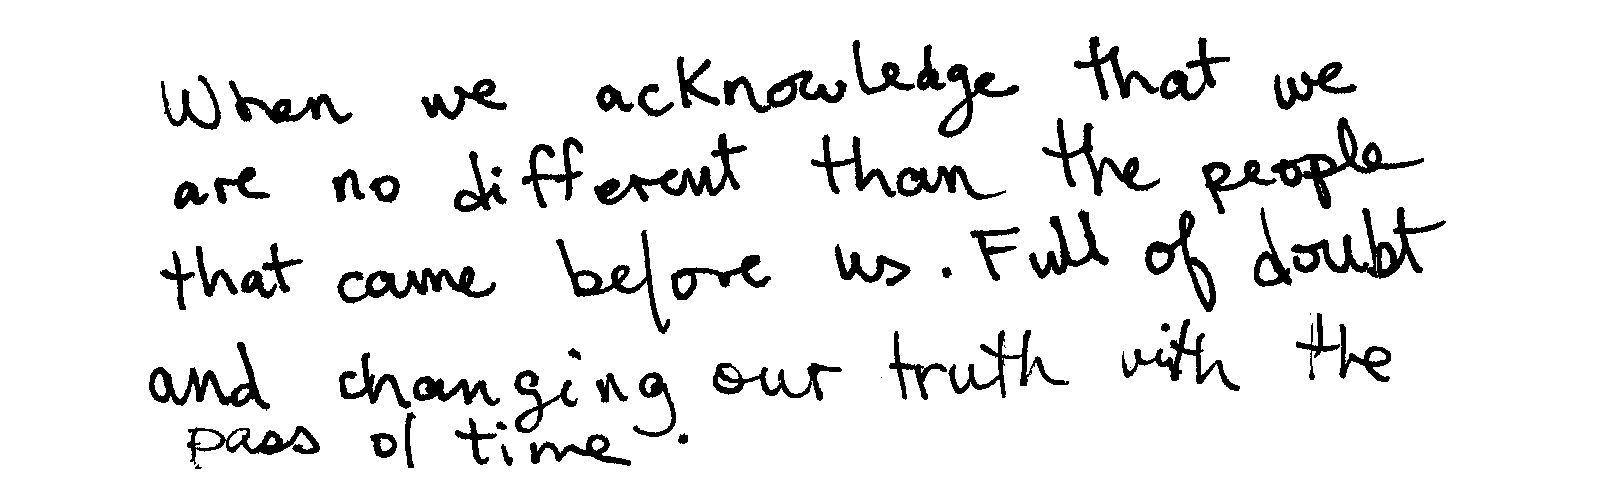 When we acknowledge that we
are no different than the people
that came before us. Full of doubt
and changing our truth with the
pass of time.